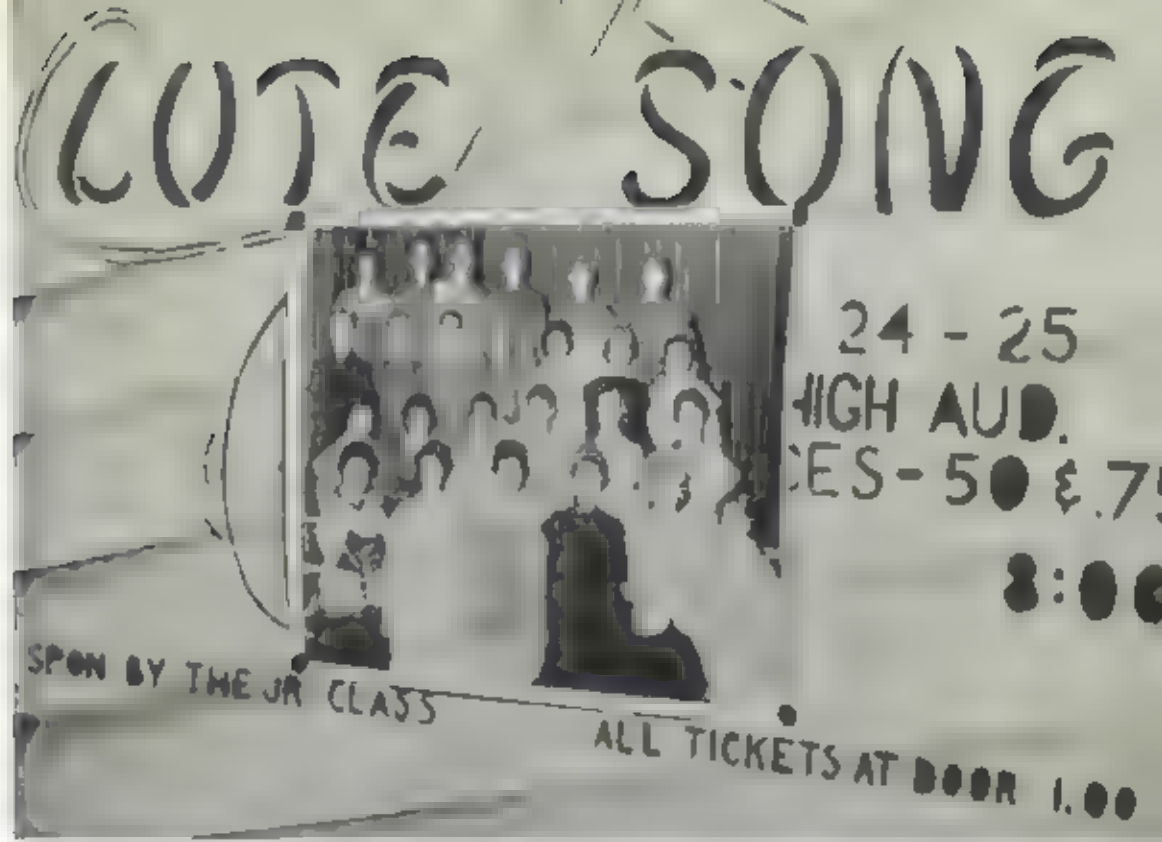 LUTE SONG
24 - 25
HIGH AUD.
ES-50 & .75
8:00
SPON BY THE JR CLASS
ALL TICKETS AT DOOR 1.00